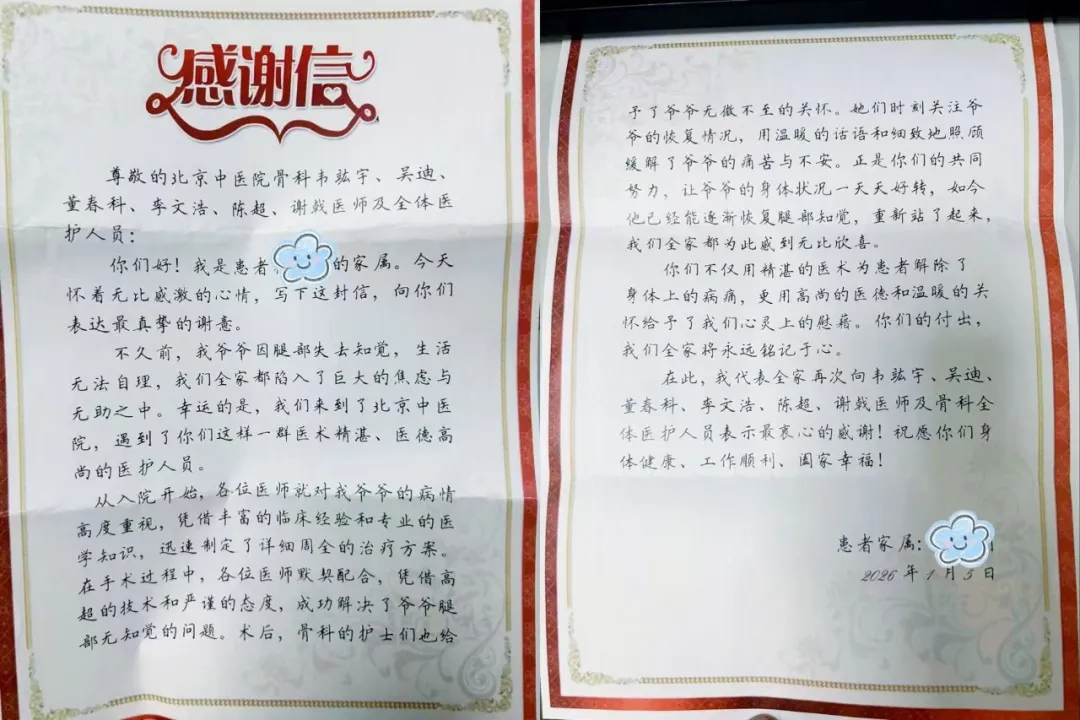 感谢信
尊敬的北京中医院骨科韦竑宇、吴迪、
董春科、李文浩、陈超、谢戟医师及全体医
护人员：
你们好！我是患者的家属。今天
怀着无比感激的心情，写下这封信，向你们
表达最真挚的谢意。
不久前，我爷爷因腿部失去知觉，生活
无法自理，我们全家都陷入了巨大的焦虑与
无助之中。幸运的是，我们来到了北京中医
院，遇到了你们这样一群医术精湛、医德高
尚的医护人员。
从入院开始，各位医师就对我爷爷的病情
高度重视，凭借丰富的临床经验和专业的医
学知识，迅速制定了详细周全的治疗方案。
在手术过程中，各位医师默契配合，凭借高
超的技术和严谨的态度，成功解决了爷爷腿
部无知觉的问题。术后，骨科的护士们也给
予了爷爷无微不至的关怀。她们时刻关注爷
爷的恢复情况，用温暖的话语和细致地照顾
缓解了爷爷的痛苦与不安。正是你们的共同
努力，让爷爷的身体状况一天天好转，如今
他已经能逐渐恢复腿部知觉，重新站了起来，
我们全家都为此感到无比欣喜。
你们不仅用精湛的医术为患者解除了
身体上的病痛，更用高尚的医德和温暖的关
怀给予了我们心灵上的慰藉。你们的付出，
我们全家将永远铭记于心。
在此，我代表全家再次向韦竑宇、吴迪、
董春科、李文浩、陈超、谢戟医师及骨科全
体医护人员表示最衷心的感谢！祝愿你们身
体健康、工作顺利、阖家幸福！
患者家属：
2026年1月5日